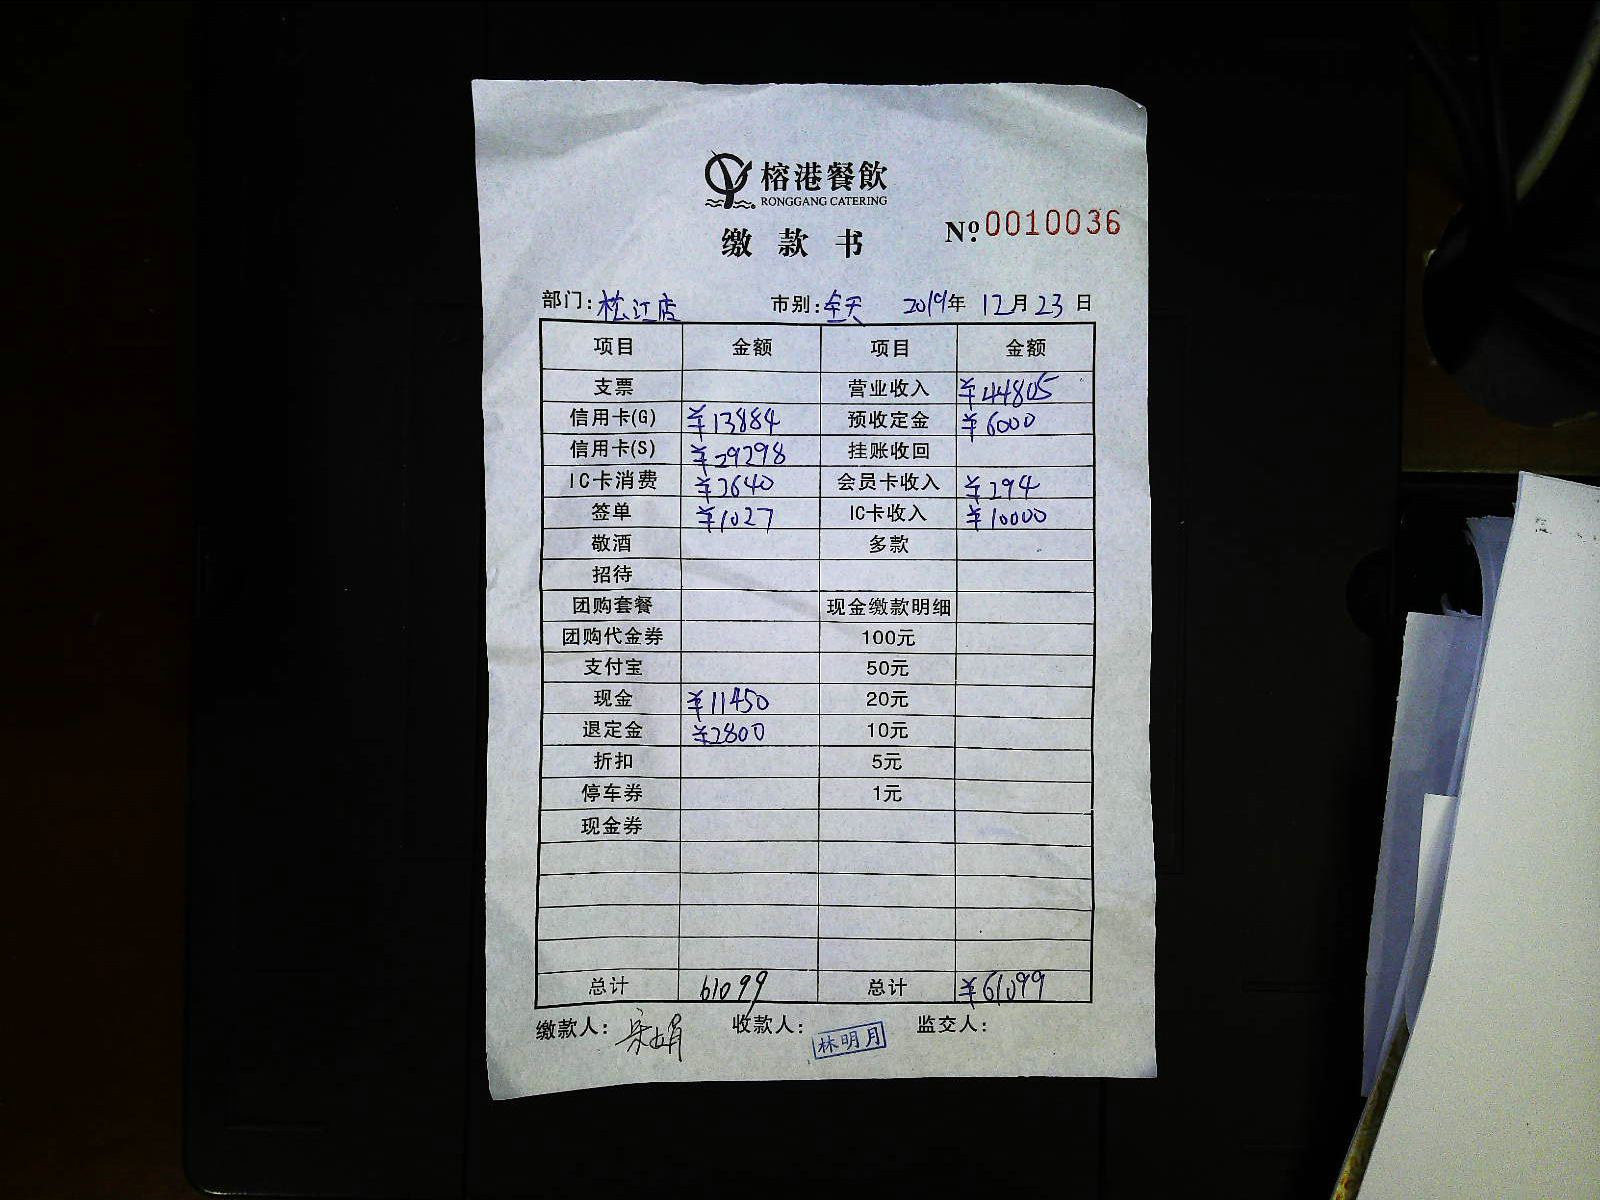 榕港餐飲
RONGGANG CATERING
缴款书
Nº 0010036
部门: 松江店 市别: 全天 2019年 12月 23日
项目 金额 项目 金额
支票 营业收入 ¥44805
信用卡(G) ¥13884 预收定金 ¥6000
信用卡(S) ¥29298 挂账收回
IC卡消费 ¥2640 会员卡收入 ¥294
签单 ¥1027 IC卡收入 ¥10000
敬酒 多款
招待
团购套餐 现金缴款明细
团购代金券 100元
支付宝 50元
现金 ¥11450 20元
退定金 ¥2800 10元
折扣 5元
停车券 1元
现金券
总计 61099 总计 ¥61099
缴款人: 收款人: 林明月 监交人: